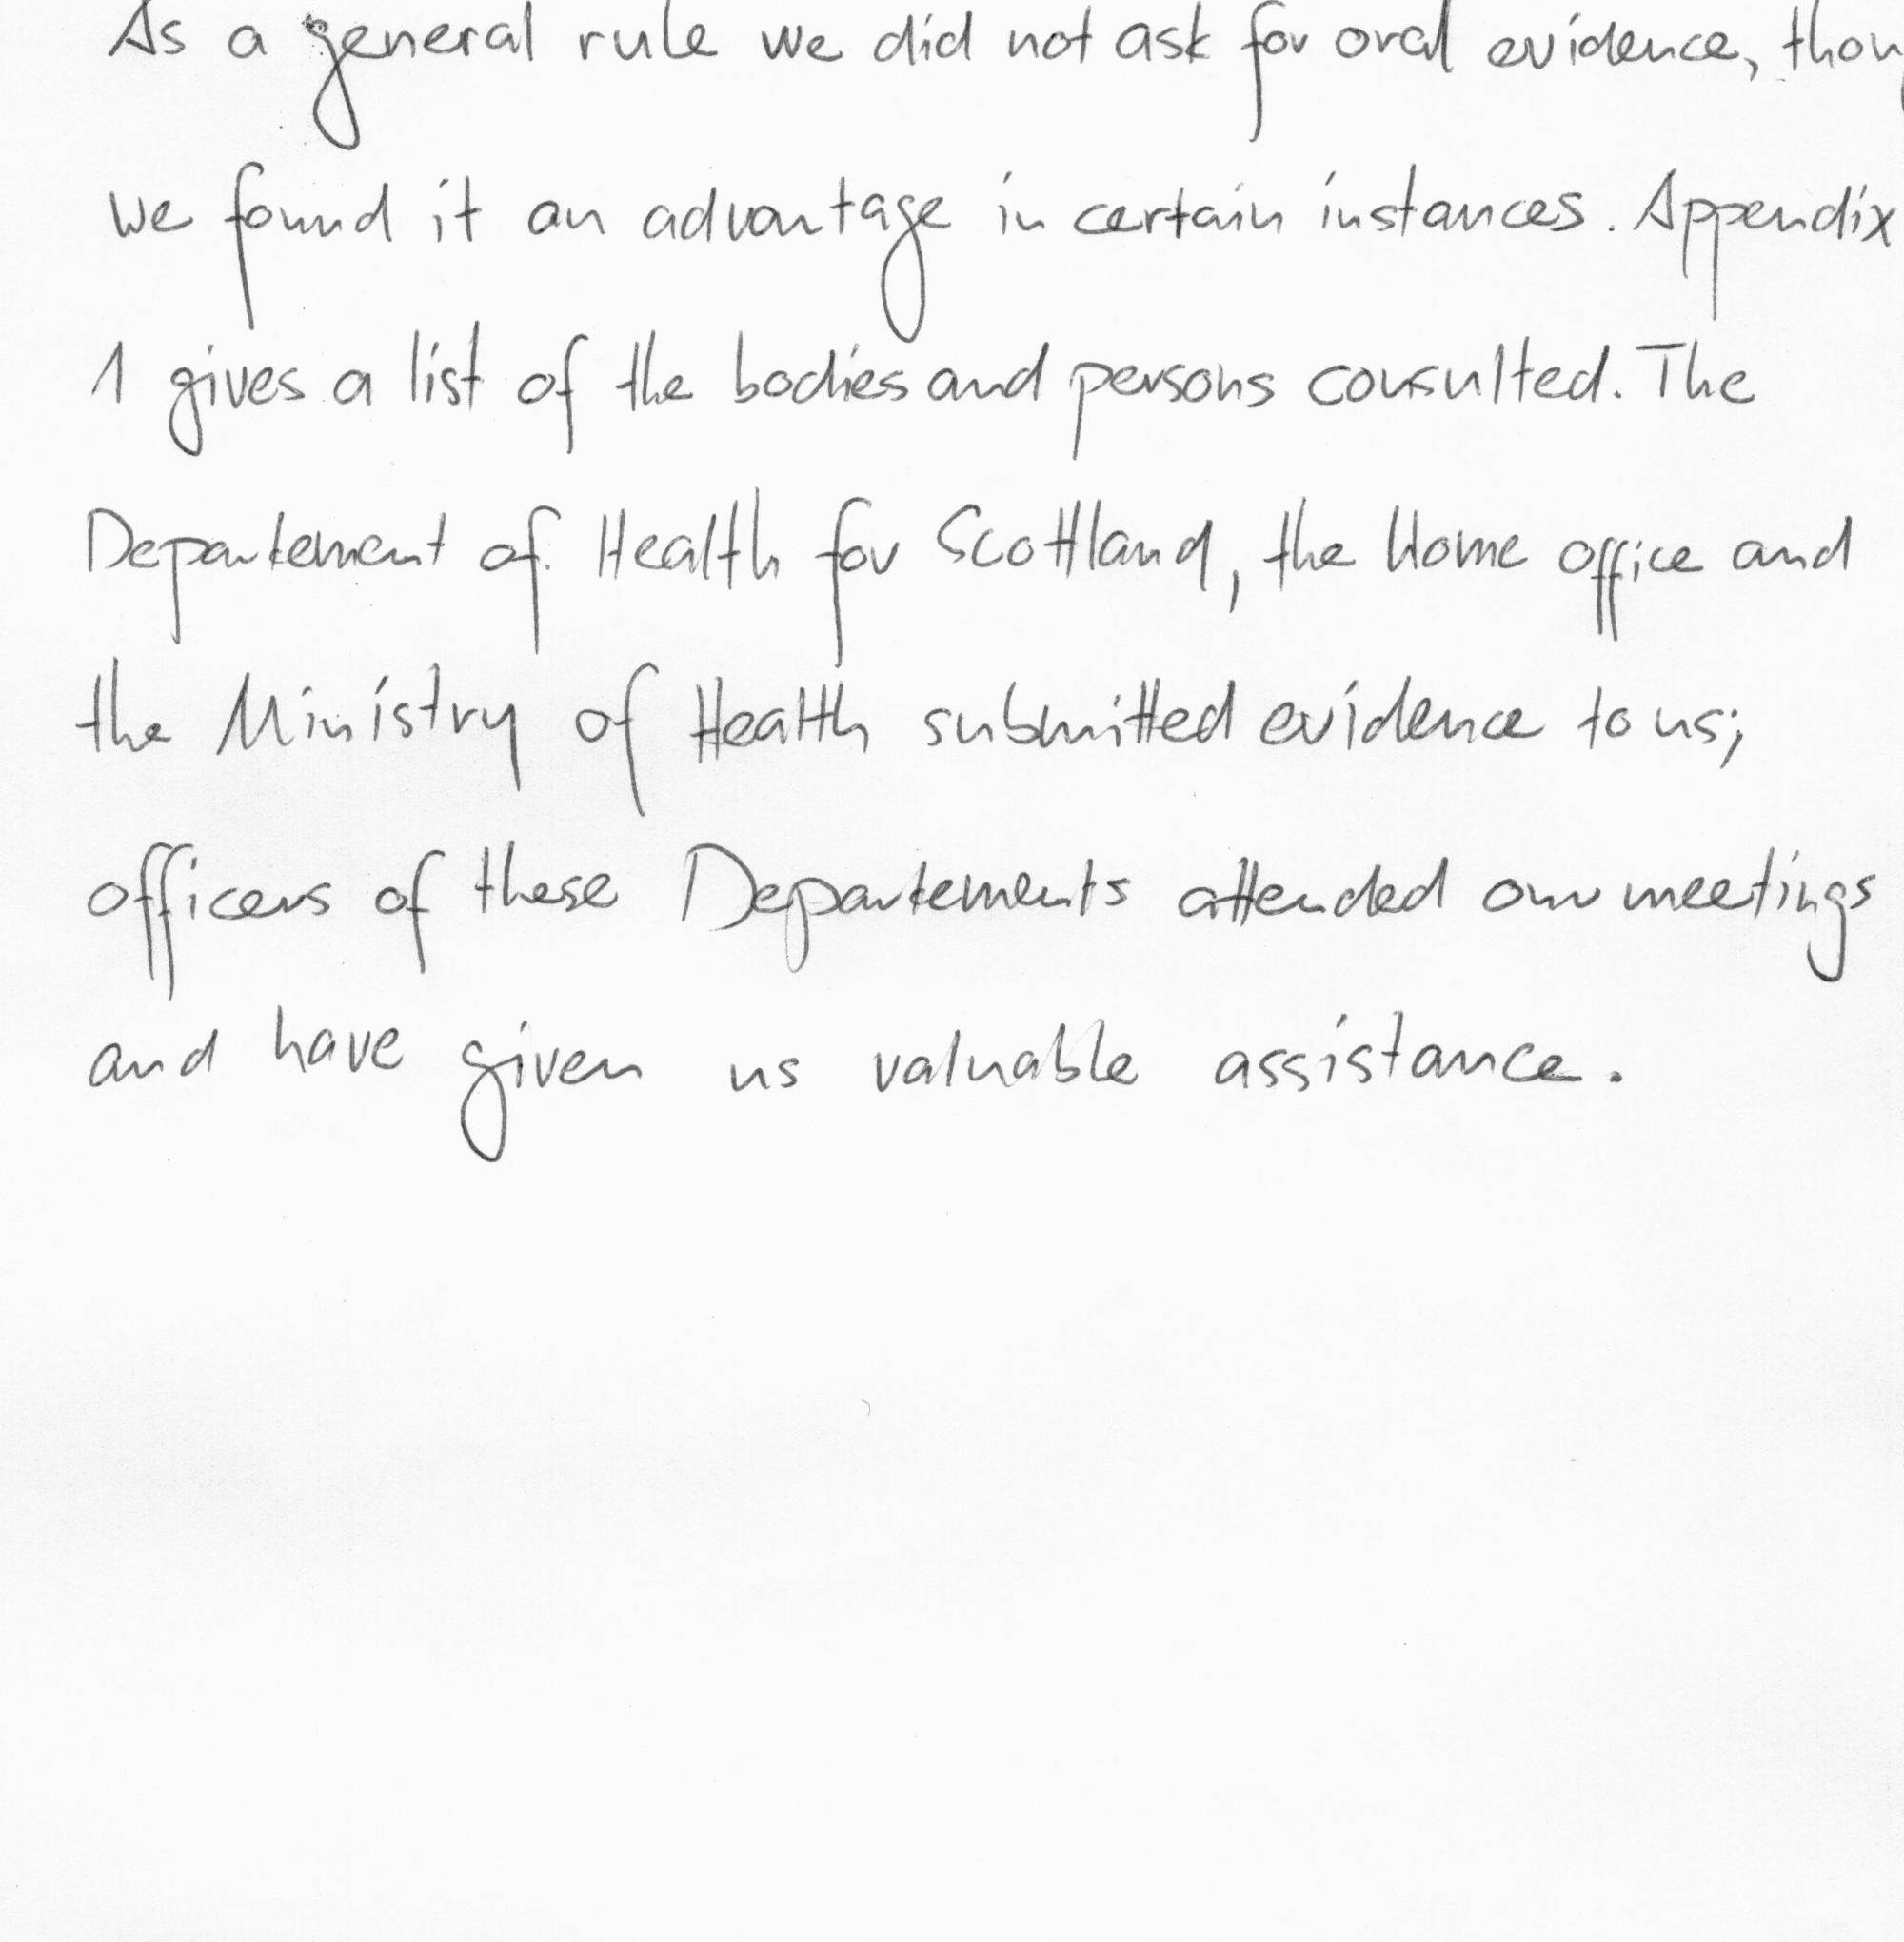 As a general rule we did not ask for oral evidence,
we found it an advantage in certain instances. Appendix
1 gives a list of the bodies and persons consulted. The
Departement of Health for Scottland, the Home office and
the Ministry of Health submitted evidence to us;
officers of these Departements attended our meetings
and have given us valuable assistance.